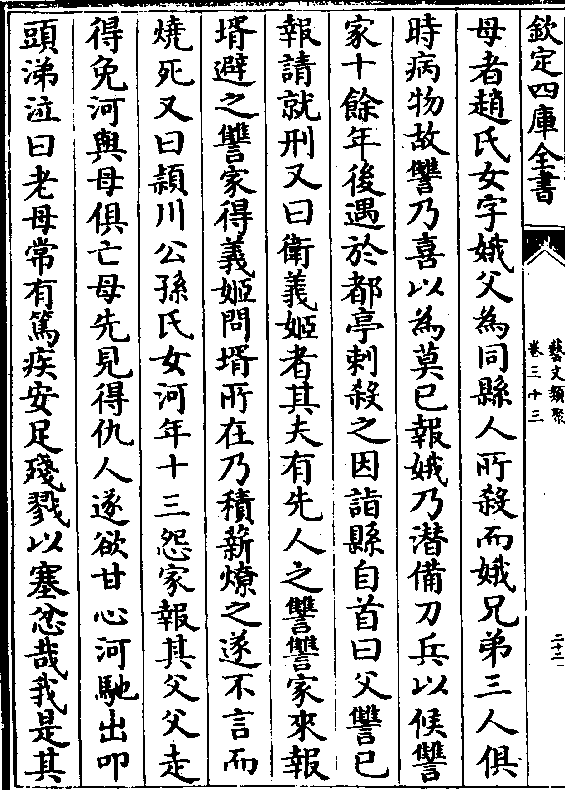 欽定四庫全書
藝文類聚
卷三十三
二十二
母者趙氏女字娥父為同縣人所殺而娥兄弟三人俱
時病物故讐乃喜以為莫已報娥乃潛備刀兵以候讐
家十餘年後遇於都亭刺殺之因詣縣自首曰父讐已
報請就刑又曰衛義姬者其夫有先人之讐讐家來報
壻避之讐家得義姬問壻所在乃積薪燎之遂不言而
燒死又曰潁川公孫氏女河年十三怨家報其父父走
得免河與母俱亡母先見得仇人遂欲甘心河馳出叩
頭涕泣曰老母常有篤疾安足殘戮以塞忿哉我是其